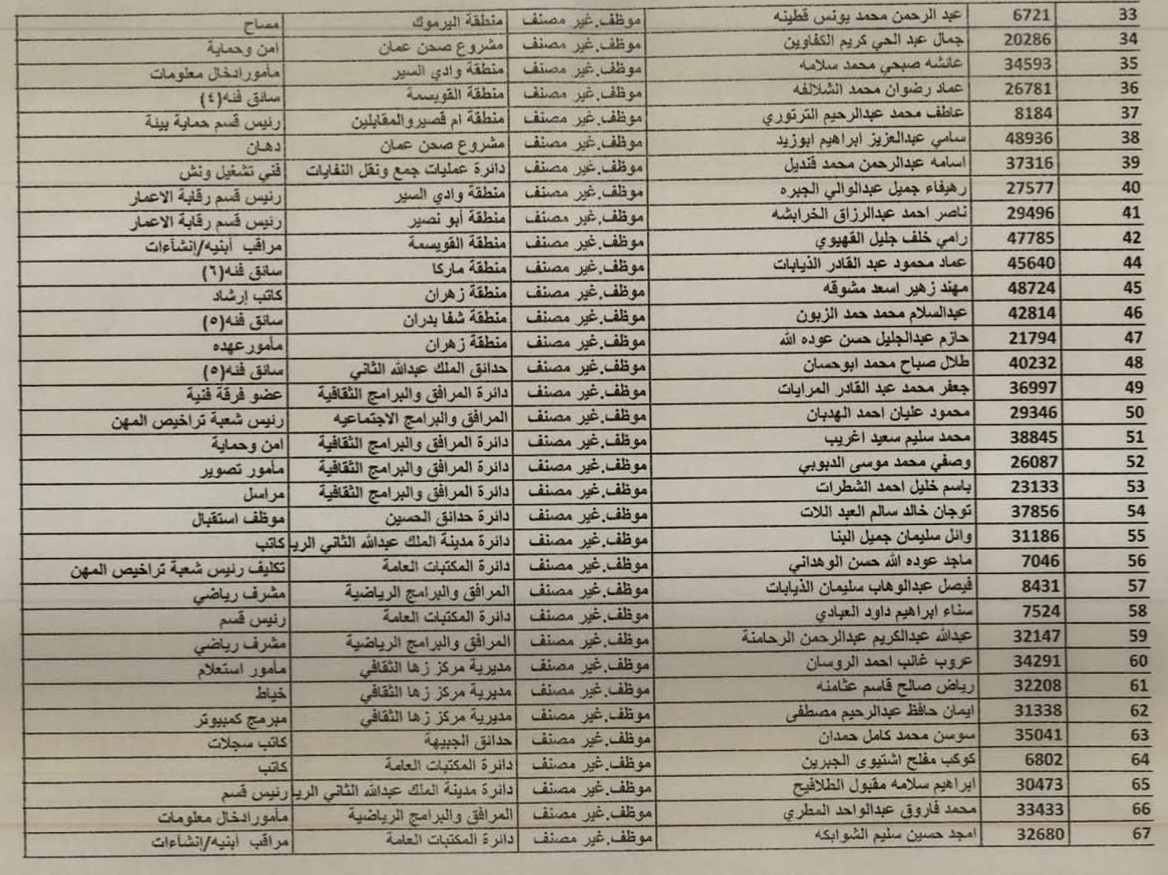 33 6721 عبد الرحمن محمد يونس قطينه موظف.غير مصنف منطقة اليرموك مساح
34 20286 جمال عبد الحي كريم الكفاوين موظف.غير مصنف مشروع صحن عمان امن وحماية
35 34593 عائشه صبحي محمد سلامه موظف.غير مصنف منطقة وادي السير مأمورادخال معلومات
36 26781 عماد رضوان محمد الشلالفه موظف.غير مصنف منطقة القويسمة سائق فئه(٤)
37 8184 عاطف محمد عبدالرحيم الترتوري موظف.غير مصنف منطقة ام قصيروالمقابلين رئيس قسم حماية بيئة
38 48936 سامي عبدالعزيز ابراهيم ابوزيد موظف.غير مصنف مشروع صحن عمان دهان
39 37316 اسامه عبدالرحمن محمد قنديل موظف.غير مصنف دائرة عمليات جمع ونقل النفايات فني تشغيل ونش
40 27577 رهيفاء جميل عبدالوالي الجبره موظف.غير مصنف منطقة وادي السير رئيس قسم رقابة الاعمار
41 29496 ناصر احمد عبدالرزاق الخرابشه موظف.غير مصنف منطقة أبو نصير رئيس قسم رقابة الاعمار
42 47785 رامي خلف جليل القهيوي موظف.غير مصنف منطقة القويسمة مراقب أبنيه/إنشآءات
44 45640 عماد محمود عبد القادر الذيابات موظف.غير مصنف منطقة ماركا سائق فئه(٦)
45 48724 مهند زهير اسعد مشوقه موظف.غير مصنف منطقة زهران كاتب إرشاد
46 42814 عبدالسلام محمد حمد الزبون موظف.غير مصنف منطقة شفا بدران سائق فئه(٥)
47 21794 حازم عبدالجليل حسن عوده الله موظف.غير مصنف منطقة زهران مأمورعهده
48 40232 طلال صباح محمد ابوحسان موظف.غير مصنف حدائق الملك عبدالله الثاني سائق فئه(٥)
49 36997 جعفر محمد عبد القادر المرايات موظف.غير مصنف دائرة المرافق والبرامج الثقافية عضو فرقة فنية
50 29346 محمود عليان احمد الهدبان موظف.غير مصنف المرافق والبرامج الاجتماعيه رئيس شعبة تراخيص المهن
51 38845 محمد سليم سعيد اغريب موظف.غير مصنف دائرة المرافق والبرامج الثقافية امن وحماية
52 26087 وصفي محمد موسى الدبوبي موظف.غير مصنف دائرة المرافق والبرامج الثقافية مأمور تصوير
53 23133 باسم خليل احمد الشطرات موظف.غير مصنف دائرة المرافق والبرامج الثقافية مراسل
54 37856 توجان خالد سالم العبد اللات موظف.غير مصنف دائرة حدائق الحسين موظف استقبال
55 31186 وائل سليمان جميل البنا موظف.غير مصنف دائرة مدينة الملك عبدالله الثاني الريا كاتب
56 7046 ماجد عوده الله حسن الوهداني موظف.غير مصنف دائرة المكتبات العامة تكليف رئيس شعبة تراخيص المهن
57 8431 فيصل عبدالوهاب سليمان الذيابات موظف.غير مصنف المرافق والبرامج الرياضية مشرف رياضي
58 7524 سناء ابراهيم داود العبادي موظف.غير مصنف دائرة المكتبات العامة رئيس قسم
59 32147 عبدالله عبدالكريم عبدالرحمن الرحامنة موظف.غير مصنف المرافق والبرامج الرياضية مشرف رياضي
60 34291 عروب غالب احمد الروسان موظف.غير مصنف مديرية مركز زها الثقافي مأمور استعلام
61 32208 رياض صالح قاسم عثامنه موظف.غير مصنف مديرية مركز زها الثقافي خياط
62 31338 ايمان حافظ عبدالرحيم مصطفى موظف.غير مصنف مديرية مركز زها الثقافي مبرمج كمبيوتر
63 35041 سوسن محمد كامل حمدان موظف.غير مصنف حدائق الجبيهة كاتب سجلات
64 6802 كوكب مفلح اشتيوى الجبرين موظف.غير مصنف دائرة المكتبات العامة كاتب
65 30473 ابراهيم سلامه مقبول الطلافيح موظف.غير مصنف دائرة مدينة الملك عبدالله الثاني الريا رئيس قسم
66 33433 محمد فاروق عبدالواحد المطري موظف.غير مصنف المرافق والبرامج الرياضية مأمورادخال معلومات
67 32680 امجد حسين سليم الشوابكه موظف.غير مصنف دائرة المكتبات العامة مراقب أبنيه/إنشآءات